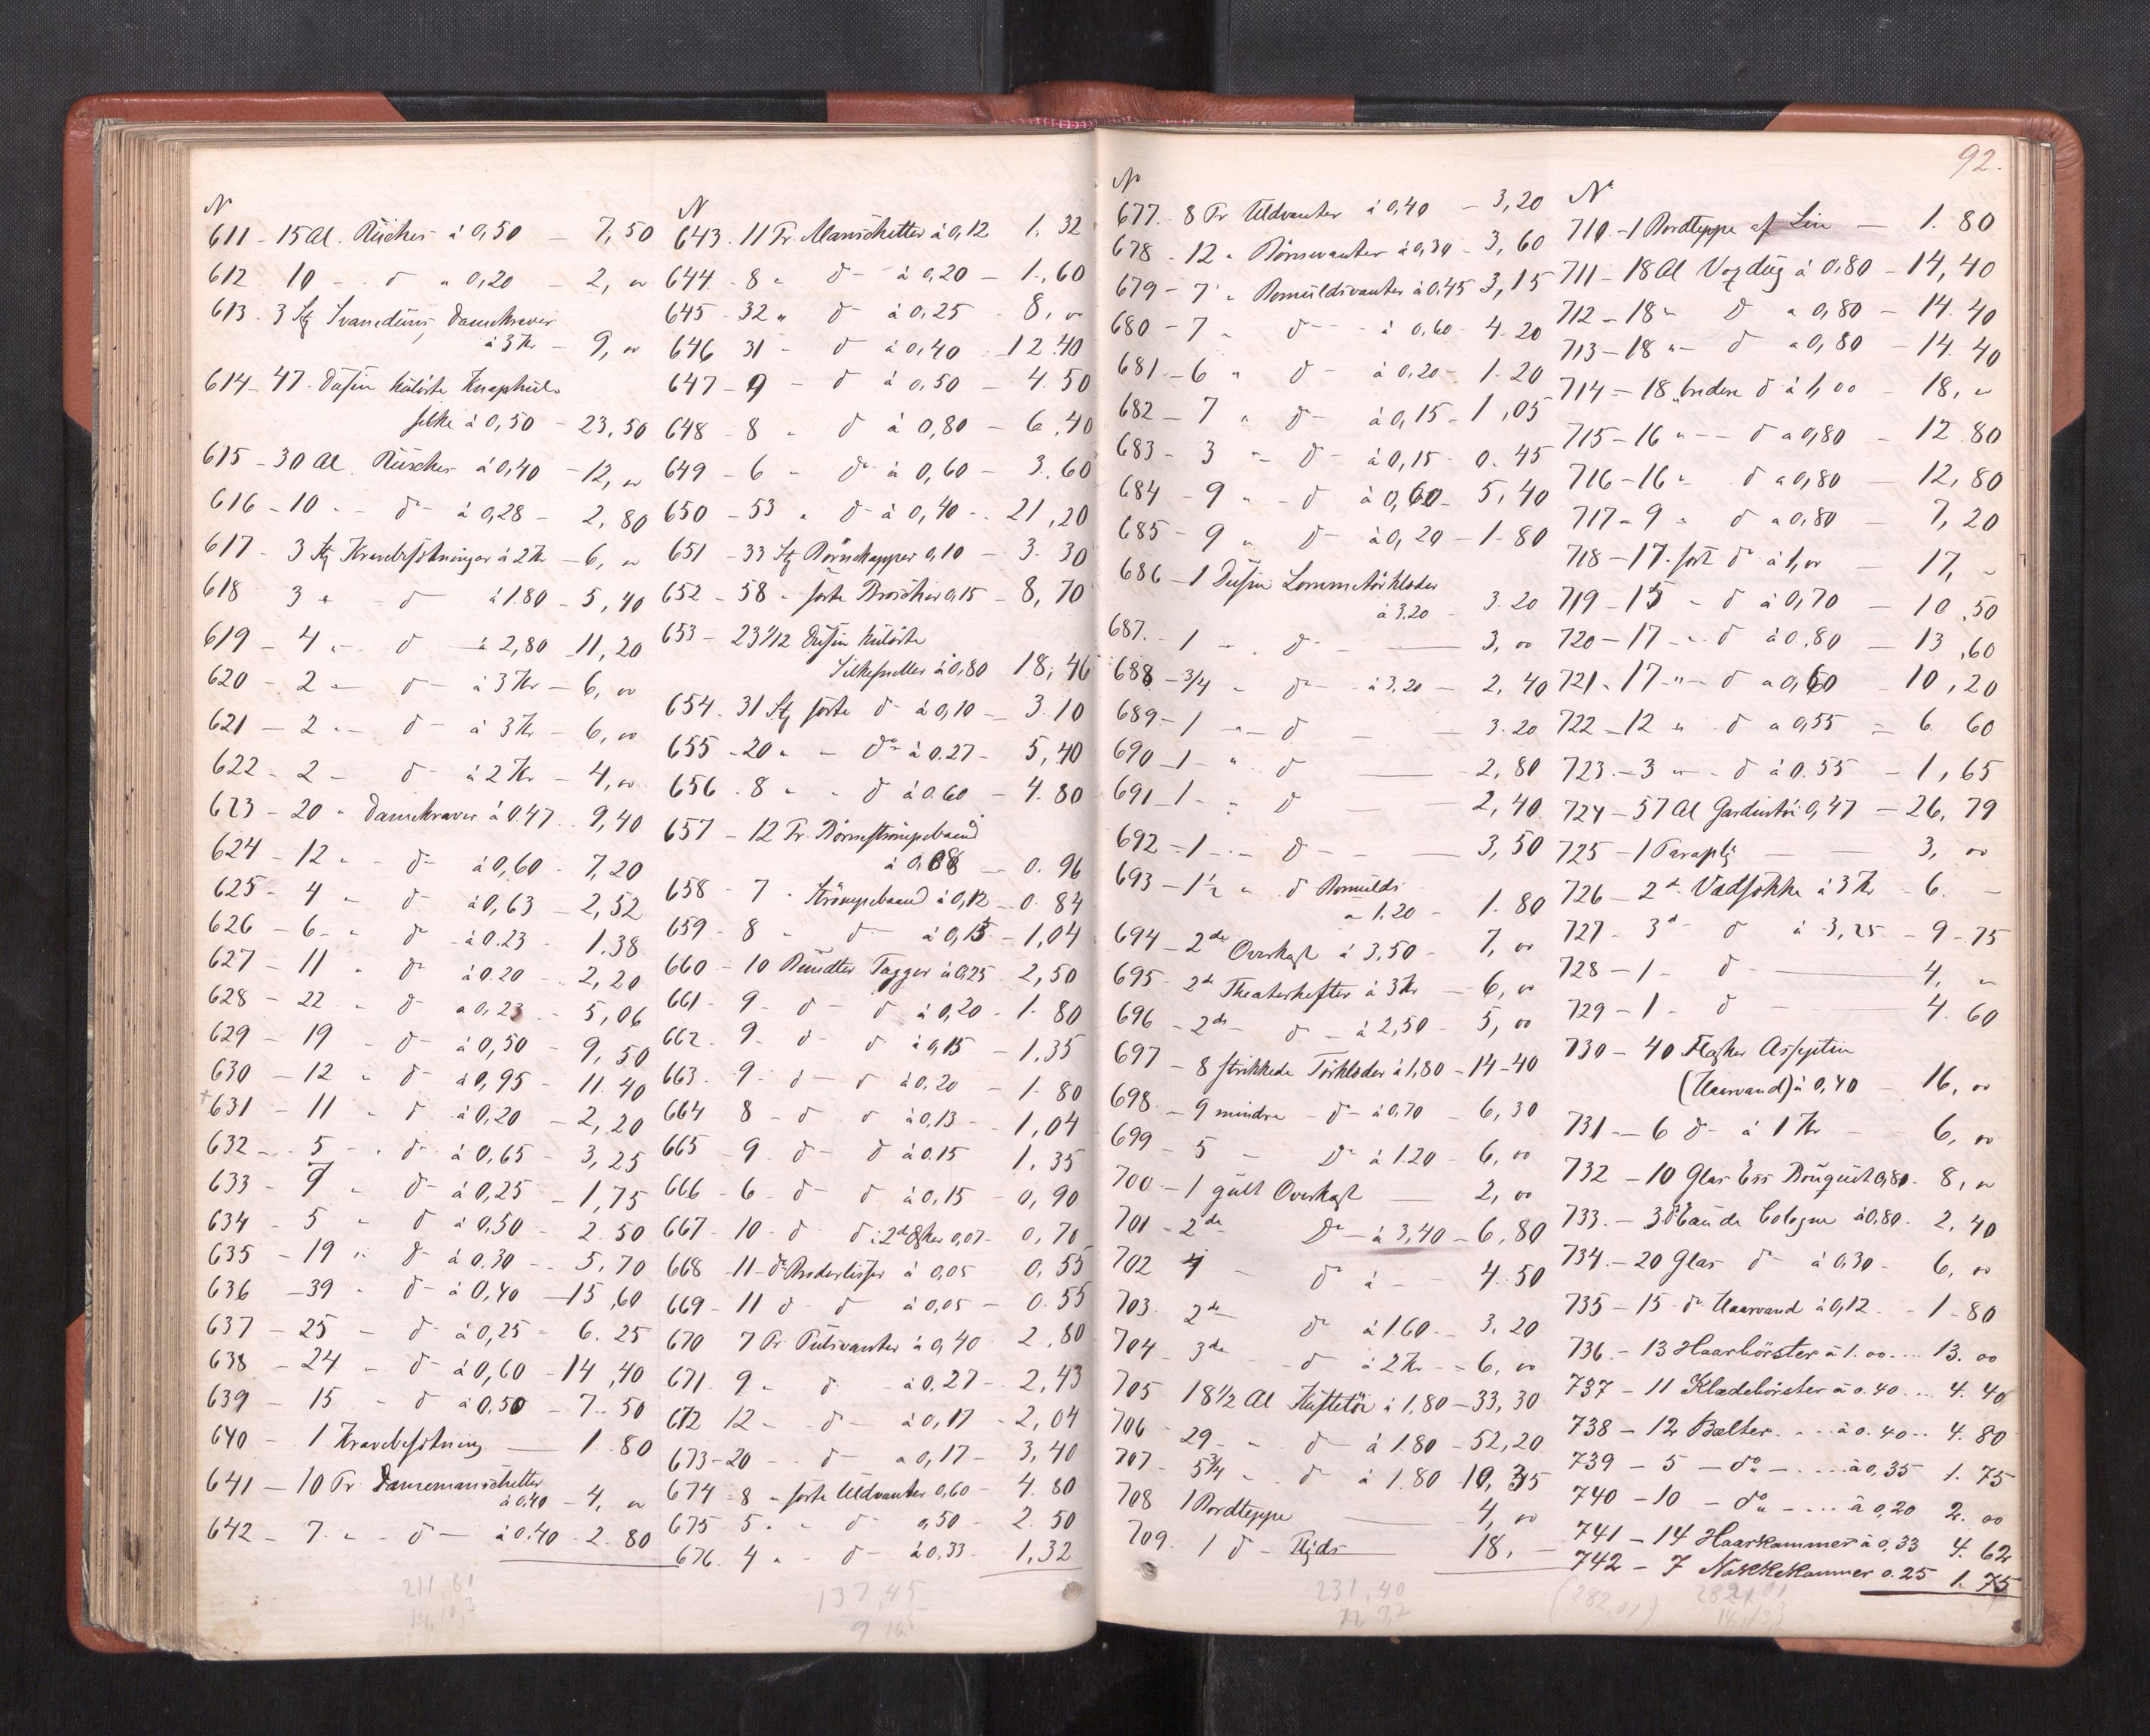 N
611 - 15 Al. Rücher à 0,50 - 7,50
612 10 - - d " 0,20 - 2, 00
613 - 3 Stz Svaneduns Damekraver
à 3 Kr - 9, 00
614 - 47 Dusin kulörte Knaphul-
silke à 0,50 - 23,50
615 - 30 Al Rüscher à 0,40 - 12, 00
616 - 10 - - do - à 0,28 - 2,80
617 - 3 Stz Kravebesætninger à 2 Kr - 6, 00
618 3 " - d à 1.80 - 5,40
619 - 4 " - d - à 2,80 11,20
620 - 2 - d - à 3 Kr - 6, 00
621 - 2 " - d - à 3 Kr - 6, 00
622 - 2 - d - à 2 Kr - 4, 00
623 - 20 " Damekraver à 0.47 - 9,40
624 - 12 " - do à 0,60 - 7.20
625 - 4 " d - à 0,63 - 2,52
626 - 6 - " do à 0.23 - 1.38
627 - 11 " do à 0.20 - 2,20
628 - 22 " d - a 0,23 - 5,06
629 - 19 - d - à 0,50 - 9,50
630 - 12 " d - à 0,95 - 11.40
+ 631 - 11 " d à 0,20 - 2,20
632 - 5 - " d - à 0,65 - 3,25
633 - 7 " d - à 0,25 - 1,75
634 - 5 " d à 0.50 - 2.50
635 - 19 " d - à 0.30 - 5,70
636 - 39 " d - à 0,40 - 15,60
637 - 25 - d - à 0,25 - 6.25
638 - 24 " d - à 0,60 - 14,40
639 - 15 - d à 0.50 - 7.50
640 - 1 Kravebesætning - 1.80
641 - 10 Pr. Damemanschetter
à 0,40 - 4, 00
642 - 7 " - d - à 0.40 - 2.80
211,81
N
643 - 11 Pr. Manschetter à 0,12 1.32
644 - 8 " d - à 0,20 - 1.60
645 - 32 " d - à 0,25 - 8, 00
646 31 - d à 0,40 - 12.40
647 - 9 - d à 0,50 - 4.50
648 - 8 " d à 0,80 - 6,40
649 - 6 - do à 0,60 - 3.60
650 - 53 " d - à 0,40 - 21,20
651 - 33 Stz Börnekapper 0,10 - 3.30
652 - 58 " sorte Broscher 0,15 - 8,70
653 - 23 1/12 Dusin kulörte
Silkesneller à 0,80 18,46
654 - 31 Stz sorte d - à 0,10 - 3.10
655 - 20 " - do à 0.27 - 5,40
656 - 8 " - d à 0.60 - 4.80
657 - 12 Pr. Börneströmpebaand
à 0,08 - 0.96
658 - 7 " Strömpebaand à 0,12 - 0.84
659 - 8 " d - à 0,13 - 1,04
660 - 10 Bundter Tagger à 0,25 - 2,50
661 - 9 - d - d à 0,20 - 1.80
662 - 9 - d - d à 0,15 - 1,35
663 - 9 - d - d à 0.20 - 1.80
664 8 - d d à 0,13 - 1,04
665 - 9 - d - d à 0.15 1.35
666 - 6 - d - d à 0,15 - 0,90
667 - 10 - d - d 0,07 - 0,70
668 - 11 - do Broderlisser à 0,05 0,55
669 - 11 d - d à 0,05 - 0.55
670 7 Pr Pulsvanter à 0,40 - 2.80
671 9 " d à 0.27 - 2,43
672 12 - d - à 0,17 - 2,04
673 - 20 - d - a 0,17 - 3,40
674 - 8 " sorte Uldvanter 0,60 - 4.80
675 5 " " d - 0,50 - 2.50
676 4 " - d - à 0,33 - 1,32
137,45
92.
No
677 - 8 Pr Uldvanter à 0,40 - 3,20
678 - 12 " Börnevanter à 0,30 - 3,60
679 - 7 " Bomuldsvanter à 0.45 3,15
680 - 7 " d - - à 0,60 - 4.20
681 - 6 " d - à 0,20 - 1.20
682 - 7 " d - à 0,15 - 1,05
683 - 3 " d - à 0,15 - 0.45
684 - 9 " - d à 0,60 - 5,40
685 - 9 " d - à 0,20 - 1.80
686 - 1 Dusin Lommetörklæder
à 3.20 - 3.20
687 - 1 - " d - - 3, 00
688 - 3/4 " do - à 3.20 - 2,40
689 - 1 " - d - 3.20
690 - 1 - " d - 2,80
691 - 1 - " d - 2,40
692 - 1 - - d - - 3,50
693 - 1 1/2 " d Bomulds
a 1.20 - 1.80
694 - 2 de Overkast à 3.50 - 7, 00
695 - 2 de Theaterhefter à 3 Kr - 6, 00
696 - 2 de d - à 2,50 - 5, 00
697 - 8 strikkede Törklæder à 1,80 - 14-40
698 - 9 mindre - d - à 0.70 - 6,30
699 - 5 - Do à 1.20 - 6, 00
700 - 1 gult Overkast - 2, 00
701 - 2 de Do - à 3,40 - 6,80
702 1 - do à - - 4.50
703 2 de do à 1.60 - 3.20
704 - 3 de - d à 2 Kr - 6, 00
705 18 1/2 Al Huftetöi à 1,80 - 33,30
706 29 - " d à 1.80 - 52,20
707 - 5 3/4 " - d - à 1.80 10,35
708 1 Bordteppe - 4, 00
709 - 1 d - Uds 18, -
231,40
No
710 - 1 Bordteppe af Lin - 1.80
711 - 18 Al Voxdug à 0,80 - 14,40
712 - 18 " d a 0,80 - 14.40
713 - 18 " d a 0,80 - 14.40
714 - 18 " bredere d à 1,00 - 18, "
715 - 16 " - - d a 0,80 - 12.80
716 - 16 " d a 0,80 - 12,80
717 - 9 " d a 0,80 - 7,20
718 - 17 " sort do à 1,00 - 17, -
719 - 15 - d à 0,70 - 10.50
720 - 17 - " d à 0.80 - 13,60
721 - 17 - " d a 0,60 - 10,20
722 - 12 " - d a 0,55 - 6.60
723 - 3 " - d à 0.55 - 1,65
724 - 57 Al Gardintöi 0,47 - 26,79
725 - 1 Paraply - 3, 00
726 - 2 de Vadsække à 3 Kr - 6. -
727 - 3 de d à 3,25 - 9-75
728 - 1 - d - 4, "
729 - 1 - d - 4.60
730 - 40 Flasker Asseptin
(Haarvand) à 0,40 - 16, 00
731 - 6 d - à 1 Kr - 6, 00
732 - 10 Glas Ess Bouquet 0,80 - 8, 00
733 - 3 d Eau de Cologne à 0.80 - 2,40
734 - 20 Glas do - à 0,30 - 6, 00
735 - 15 - do Haarvand à 0,12 - 1-80
736 - 13 Haarbörster à 1.00 ... 13.00
737 - 11 Klædebörster à 0.40 ... 4.40
738 - 12 Bælter . . . à 0.40 .. 4.80
739 - 5 - do - . . . à 0,35 1.75
740 - 10 - do - . . . à 0,20 2.00
741 - 14 Haarkammer à 0,33 4.62
742 - 7 Nakkekammer 0.25 1.75
(282,01)